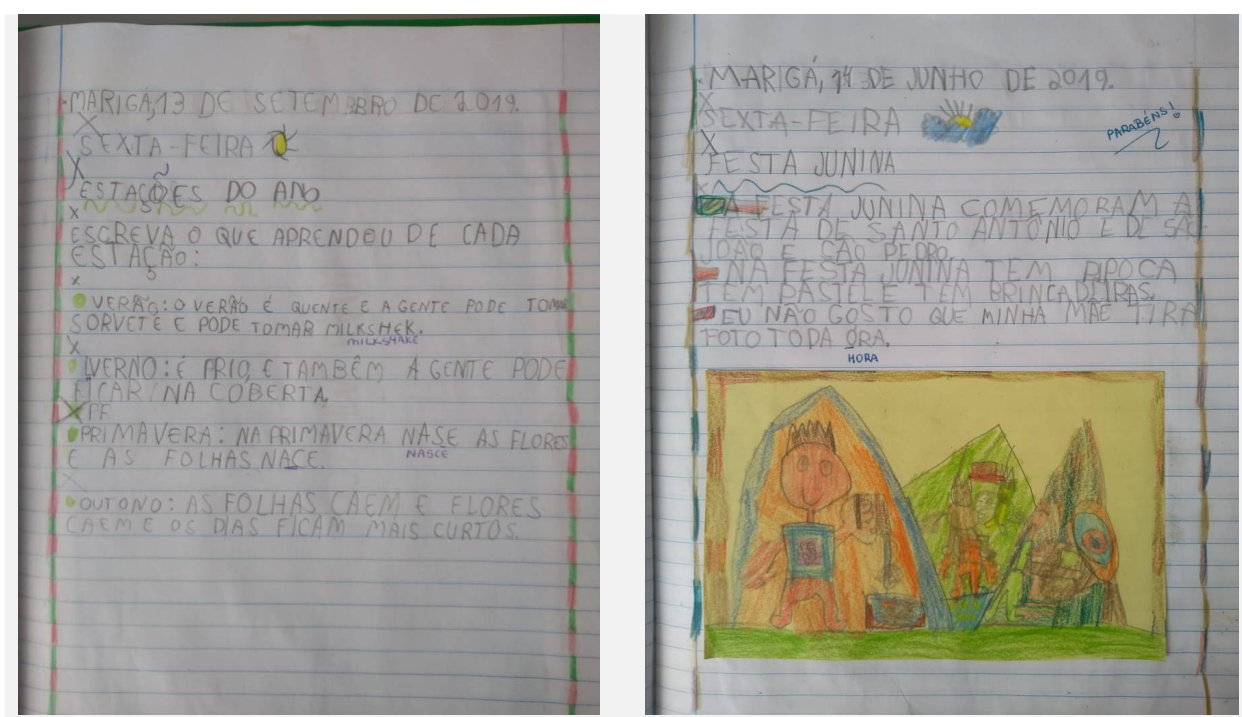 MARIGÁ,13 DE SETEMBRO DE 2019.
SEXTA-FEIRA
ESTAÇÕES DO ANO
ESCREVA O QUE APRENDEU DE CADA
ESTAÇÃO:
VERÃO: O VERÃO É QUENTE E A GENTE PODE TOMAR
SORVETE E PODE TOMAR MILKSHEK.
MILKSHAKE
IVERNO: É FRIO, E TAMBÊM A GENTE PODE
FICAR NA COBERTA.
PRIMAVERA: NA PRIMAVERA NASE AS FLORES
NASCE
E AS FOLHAS NACE.
OUTONO: AS FOLHAS CAEM E FLORES
CAEM E OS DIAS FICAM MAIS CURTOS.
MARIGÁ, 14 DE JUNHO DE 2019.
SEXTA-FEIRA
PARABÉNS!
FESTA JUNINA
A FESTA JUNINA COMEMORAM A
FESTA DE SANTO ANTÔNIO E DE SÃO
JOÃO E SÃO PEDRO.
NA FESTA JUNINA TEM PIPOCA
TEM PASTEL E TEM BRINCADEIRAS.
EU NÃO GOSTO QUE MINHA MÃE TIRA
FOTO TODA ORA.
HORA